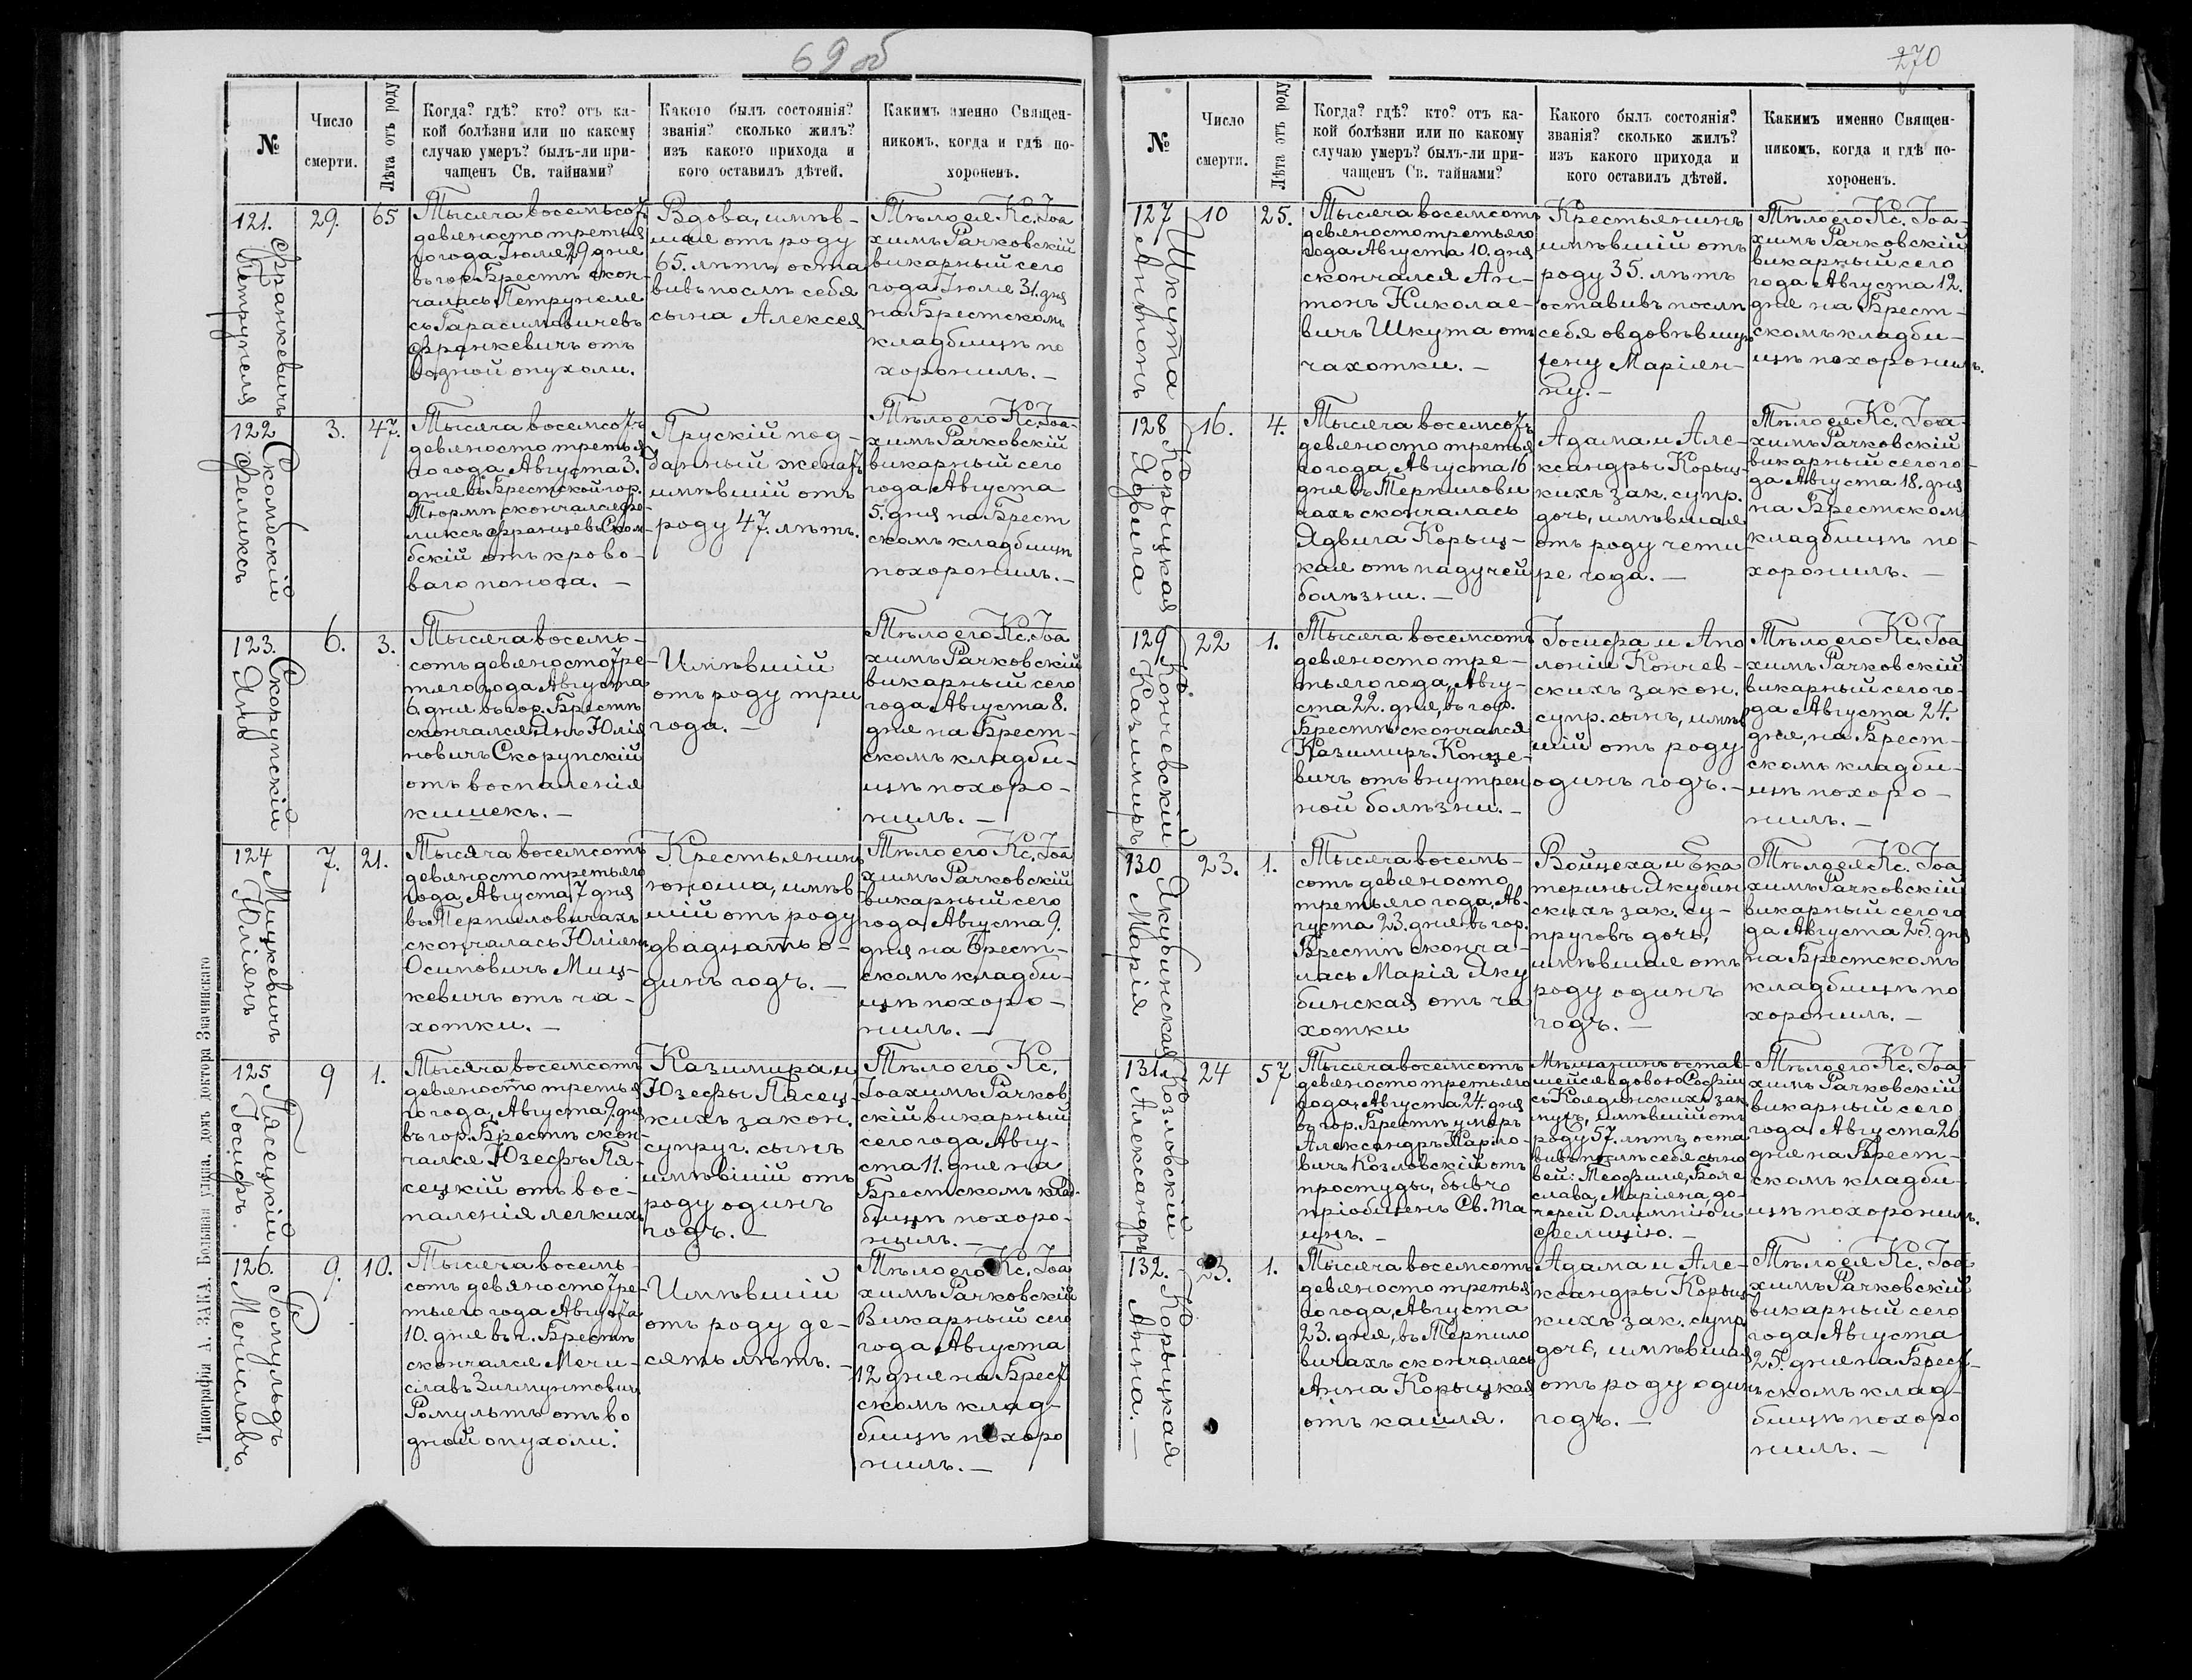 69 об
№
Число
смерти.
Лѣта отъ роду
Когда? гдѣ? кто? отъ ка-
кой болѣзни или по какому
случаю умеръ? былъ-ли при-
чащенъ Св. тайнами?
Какого былъ состоянія?
званія? сколько жилъ?
изъ какого прихода и
кого оставилъ дѣтей.
Какимъ именно Священ-
никомъ, когда и гдѣ по-
хороненъ.
121.
Франкевичъ
Петрунеля
29.
65
Тысяча восемьсотъ
девяносто третья
го года Іюля 29 дня
въ гор. Брестѣ скон-
чалась Петрунеля
съ Гарасимовичевъ
Франкевичъ отъ
водной опухоли.
Вдова, имѣв-
шая отъ роду
65. лѣтъ, оста
вивъ послѣ себя
сына Алексея
Тѣло ея Кс. Іоа
химъ Рачковскій
викарный сего
года Іюля 31. дня
на Брестскомъ
кладбищѣ по
хоронилъ. —
122
Скомбскій
Феликсъ
3.
47.
Тысяча восемсотъ
девяносто третья
го года, Августа 3.
дня въ Брестской гор.
Тюрмѣ скончался Фе-
ликсъ Францевъ Ском-
бскій отъ крово-
ваго поноса. —
Прускій под-
данный женатъ
имѣвшій отъ
роду 47. лѣтъ.
Тѣло его Кс. Іоа-
химъ Рачковскій
викарный сего
года Августа
5. дня на Брест
скомъ кладбищѣ
похоронилъ. —
123.
Скорупскій
Янъ
6.
3.
Тысяча восемь-
сотъ девяносто тре-
тяго года Августа
6. дня въ гор. Брестѣ
скончался Янъ Юлія
новичъ Скорупскій
отъ воспаленія
кишекъ. —
Имѣвшій
отъ роду три
года. —
Тѣло его Кс. Іоа
химъ Рачковскій
викарный сего
года Августа 8.
дня на Брест-
скомъ кладби-
щѣ похоро-
нилъ. —
124
Мицкевичъ
Юліянъ
7.
21.
Тысяча восемсотъ
девяносто третьяго
года, Августа 7 дня
въ Терпиловичахъ
скончалась Юліянъ
Осиповичъ Миц-
кевичъ отъ ча-
хотки. —
Крестьянинъ
юноша, имѣв-
шій отъ роду
двадцать о-
динъ годъ. —
Тѣло его Кс. Іоа
химъ Рачковскій
викарный сего
года Августа 9.
дня на Брест-
скомъ кладби-
щѣ похоро-
нилъ. —
125
Пясецкій
Іосифъ.
9
1.
Тысяча восемсотъ
девяносто третья
го года, Августа 9. дня
въ гор. Брестѣ скон-
чался Юзефъ Пя-
сецкій отъ вос-
паленія легкихъ
Казимира и
Юзефы Пясец-
кихъ закон.
супруг. сынъ
имѣвшій отъ
роду одинъ
годъ. —
Тѣло его Кс.
Іоахимъ Рачков
скій викарный
сего года Авгу-
ста 11. дня на
Брестскомъ клад-
бищѣ похоро-
нилъ. —
126.
Ромульдъ
Мечиславъ
9.
10.
Тысяча восемь-
сотъ девяносто тре-
тьяго года Августа
10. дня въ г. Брестѣ
скончался Мечи-
славъ Зигмунтовичъ
Ромультъ отъ во
дной опухоли.
Имѣвшій
отъ роду де-
сять лѣтъ. —
Тѣло его Кс. Іоа
химъ Рачковскій
Викарный сего
года Августа
12 дня на Брест
скомъ клад-
бищѣ похоро
нилъ. —
Типографія А. ЗАКА. Большая улица, домъ доктора Значинскаго
270
№
Число
смерти.
Лѣта отъ роду
Когда? гдѣ? кто? отъ ка-
кой болѣзни или по какому
случаю умеръ? былъ-ли при-
чащенъ Св. тайнами?
Какого былъ состоянія?
званія? сколько жилъ?
изъ какого прихода и
кого оставилъ дѣтей.
Какимъ именно Священ-
никомъ, когда и гдѣ по-
хороненъ.
127
Шкута
Антонъ
10
25.
Тысяча восемсотъ
девяносто третьяго
года Августа 10. дня
скончался Ан-
тонъ Николае-
вичъ Шкута отъ
чахотки. —
Крестьянинъ
имѣвшій отъ
роду 35. лѣтъ
оставивъ послѣ
себя овдовѣвшую
жену Маріян-
ну. —
Тѣло его Кс. Іоа-
химъ Рачковскій
викарный сего
года Августа 12.
дня на Брест-
скомъ кладби-
щѣ похоронилъ.
128
Корыцкая
Ядвига
16.
4.
Тысяча восемсотъ
девяносто третья
го года, Августа 16
дня въ Терпилови
чахъ скончалась
Ядвига Корыц-
кая отъ падучей
болѣзни. —
Адама и Але-
ксандры Корыц-
кихъ зак. супр.
дочь, имѣвшая
отъ роду четы-
ре года. —
Тѣло ея Кс. Іоа-
химъ Рачковскій
викарный сего го-
да Августа 18. дня
на Брестскомъ
кладбищѣ по-
хоронилъ. —
129
Кончевскій
Казимиръ
22
1.
Тысяча восемсотъ
девяносто тре-
тьяго года, Авгу-
ста 22. дня, въ гор.
Брестѣ скончался
Казимиръ Конце-
вичъ отъ внутрен
ной болѣзни. —
Іосифа и Апо
лоніи Кончев-
скихъ закон.
супр. сынъ, имѣв
шій отъ роду
одинъ годъ. —
Тѣло его Кс. Іоа
химъ Рачковскій
викарный сего го-
да Августа 24.
дня, на Брест-
скомъ кладби-
щѣ похоро-
нилъ. —
130
Якубинская
Марія
23.
1.
Тысяча восемь-
сотъ девяносто
третьяго года, Ав-
густа 23. дня въ гор.
Брестѣ сконча-
лась Марія Яку
бинская отъ ча
хотки
Войцеха и Ека
терины Якубин
скихъ зак. су-
пруговъ дочь,
имѣвшая отъ
роду одинъ
годъ. —
Тѣло ея Кс. Іоа
химъ Рачковскій
викарный сего го
да Августа 25. дня
на Брестскомъ
кладбищѣ по
хоронилъ. —
131.
Козловскій
Александръ
24
57
Тысяча восемсотъ
девяносто третьяго
года, Августа 24. дня
въ гор. Брестѣ умеръ
Александръ Карло-
вичъ Козловскій отъ
простуды, бывъ
пріобщенъ Св. Та
инъ. —
Мѣщанинъ остав-
шейся вдовою Софіи
съ Колдинскихъ зак
нутъ, имѣвшій отъ
роду 57. лѣтъ оста
вивъ послѣ себя сыно
вей: Теофиля, Боле
слава, Маріяна, до-
черей Олимпію и
Фелицію. —
Тѣло его Кс. Іоа
химъ Рачковскій
викарный сего
года Августа 26
дня на Брест-
скомъ кладби-
щѣ похоронилъ.
132.
Корыцкая
Анна. —
23.
1.
Тысяча восемсотъ
девяносто третья
го года, Августа
23. дня, въ Терпило
вичахъ скончалась
Анна Корыцкая
отъ кашля.
Адама и Але-
ксандры Корыц-
кихъ зак. супр.
дочь, имѣвшая
отъ роду одинъ
годъ. —
Тѣло ея Кс. Іоа
химъ Рачковскій
викарный сего
года Августа
25. дня на Брест-
скомъ клад-
бищѣ похоро
нилъ. —